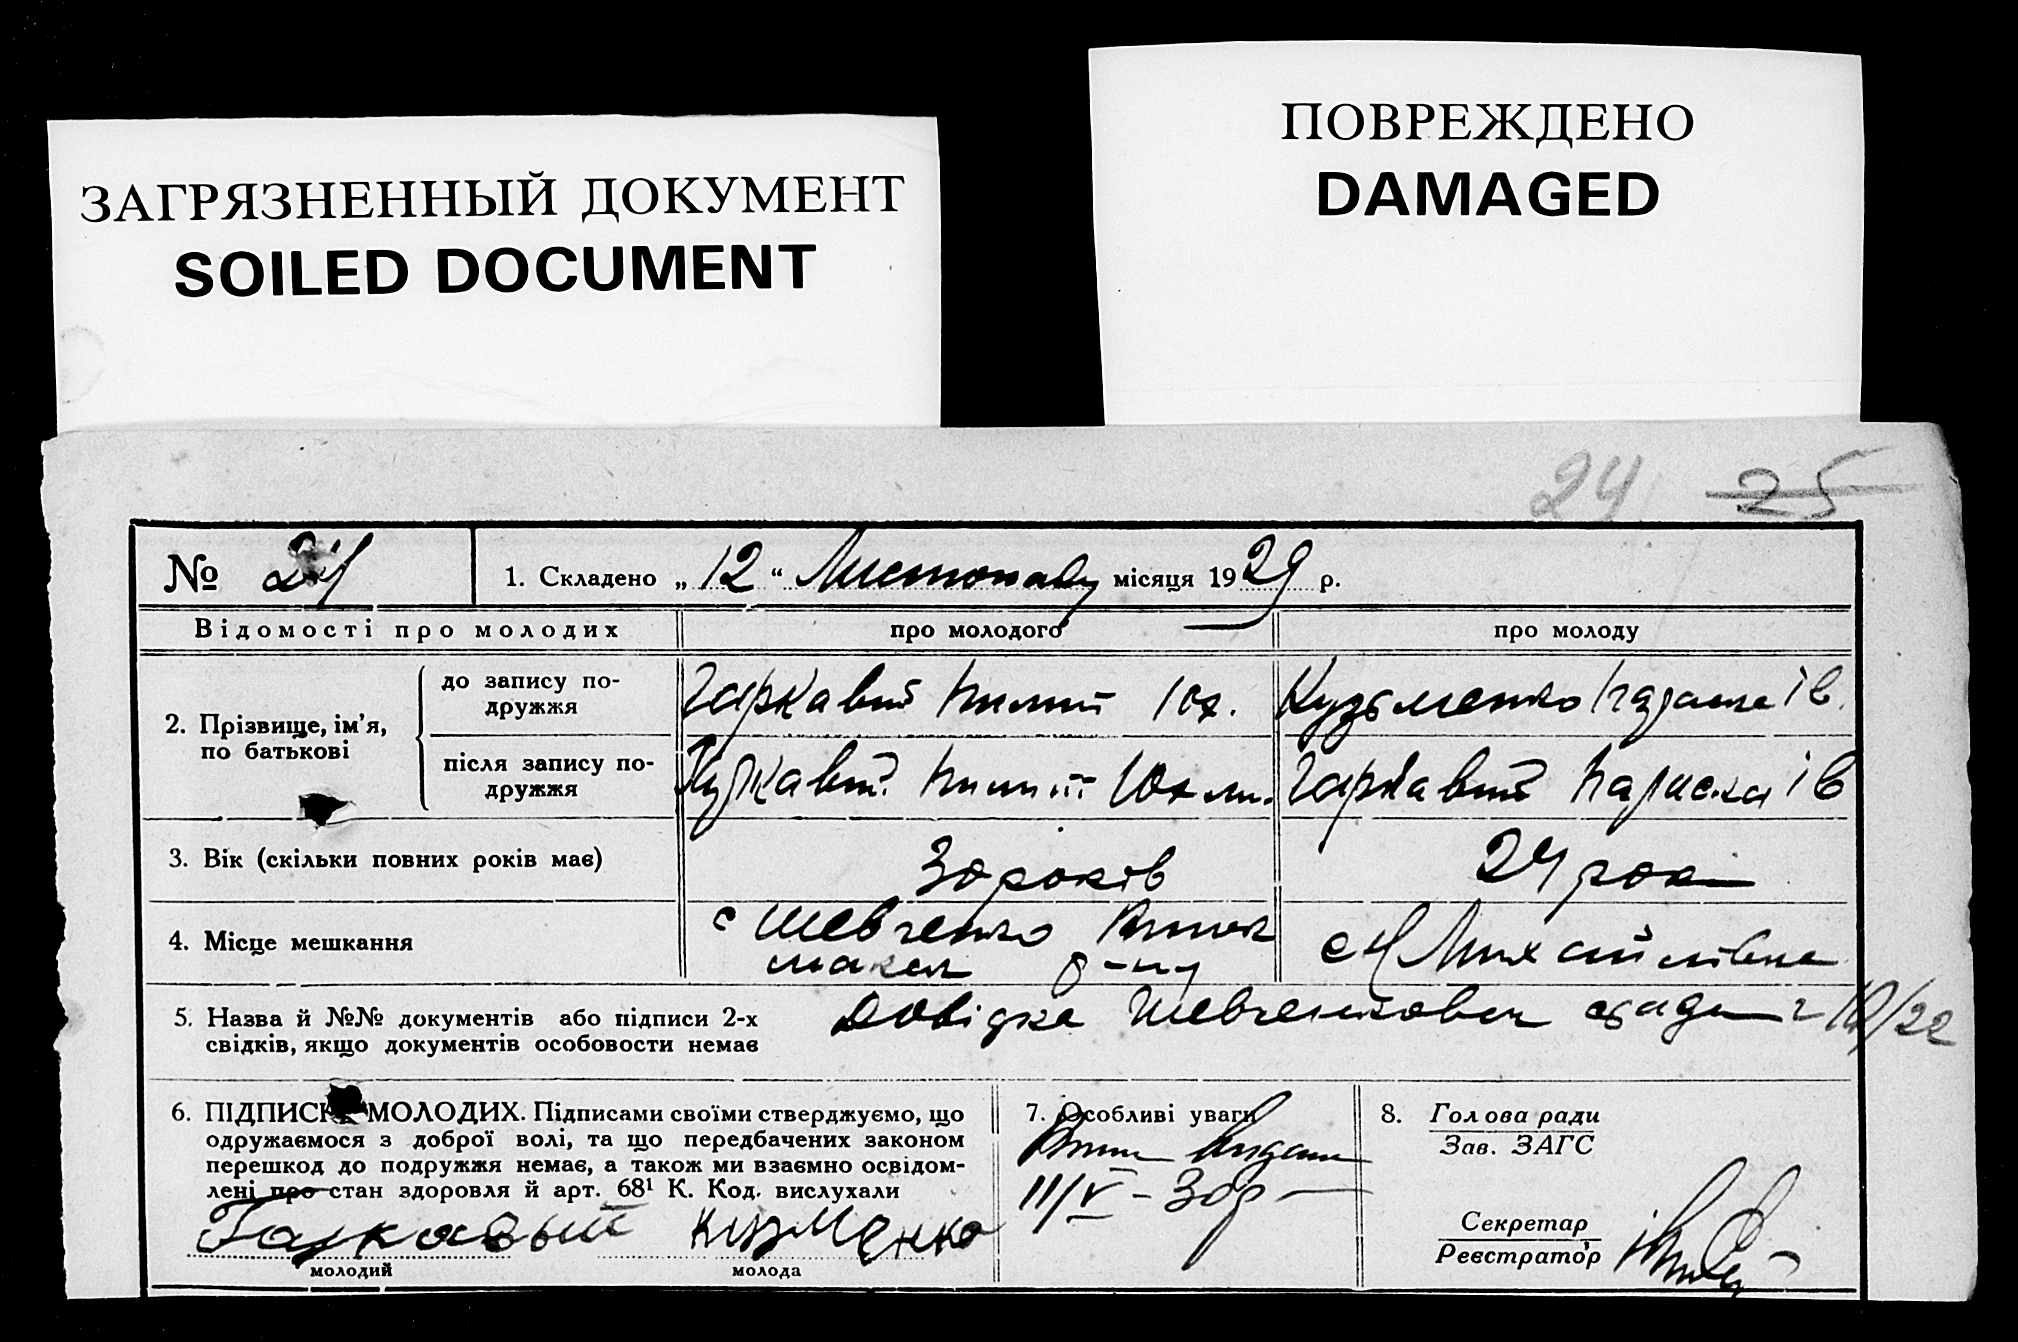 ЗАГРЯЗНЕННЫЙ ДОКУМЕНТ
SOILED DOCUMENT
ПОВРЕЖДЕНО
DAMAGED
24 25
№ 24
1. Складено „ 12 “ Листопаду місяця 1929 р.
Відомості про молодих
про молодого
про молоду
2. Прізвище, ім’я, по батькові
до запису подружжя
Гаркавий Пилип Юх.
Кузьменко Ів.
після запису подружжя
Гаркавий Пилип Юхим.
Гаркавий Параска Ів
3. Вік (скільки повних років має)
30 років
24 роки
4. Місце мешкання
с Шевченко
р-ну
с Михайлівка
5. Назва й №№ документів або підписи 2-х
свідків, якщо документів особовости немає
Довідка
6. ПІДПИСКА МОЛОДИХ. Підписами своїми стверджуємо, що
одружаємося з доброї волі, та що передбачених законом
перешкод до подружжя немає, а також ми взаємно освідом-
лені про стан здоровля й арт. 68¹ К. Код. вислухали
Гаркавый
молодий
Кузменко
молода
7. Особливі уваги
11/V – 30р
8. Голова ради
Зав. ЗАГС
Секретар
Реєстратор